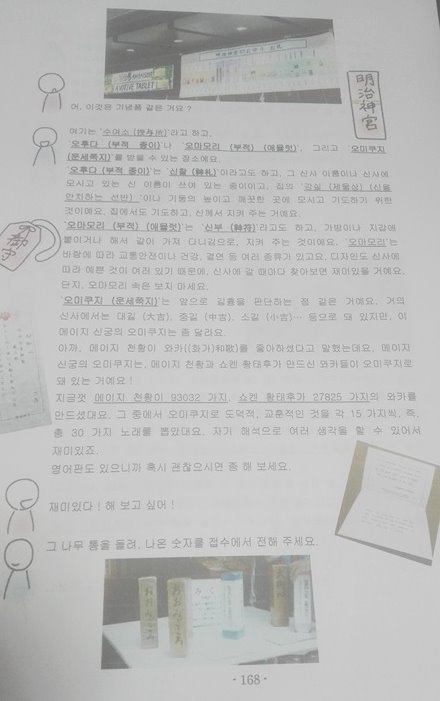 VOTIVE TABLET
明治神宮
어, 이것은 기념품 같은 거요 ?
여기는 '수여소 (授与所)'라고 하고,
'오후다 (부적 종이)'나 '오마모리 (부적) (애뮬럿)', 그리고 '오미쿠지
(운세쪽지)'를 받을 수 있는 장소예요.
'오후다 (부적 종이)'는 '신찰 (神札)'이라고도 하고, 그 신사 이름이나 신사에
모시고 있는 신 이름이 쓰여 있는 종이이고, 집의
안치하는 선반) '이나 거동의 높이고 깨끗한 곳에 모시고 기도하기 위한
것이예요. 집에서도 기도하고, 신께서 지켜 주는 거예요.
'오마모리 (부적) (애뮬럿)'는 '신부 (神符)'라고도 하고, 가방이나 지갑에
붙이거나 해서 같이 가져 다니김으로, 지켜 주는 것이예요. '오마모리'는
바람에 따라 교통안전이나 건강, 결연 등 여러 종류가 있고요. 디자인도 신사에
따라 예쁜 것이 여러 있기 때문에, 신사에 갈 때마다 찾아보면 재미있을 거예요.
단지, 오마모리 속은 보지 마세요.
'오미쿠지 (운세쪽지)'는 앞으로 길흉을 판단하는 점 같은 거예요. 거의
신사에서는 대길 (大吉), 중길 (中吉), 소길 (小吉)… 등으로 돼 있지만, 이
메이지 신궁의 오미쿠지는 좀 달라요.
아까, 메이지 천황이 와카((화가)和歌)를 좋아하셨다고 말했는데요, 메이지
신궁의 오미쿠지는, 메이지 천황과 쇼켄 황태후가 만드신 와카들이 오미쿠지로
돼 있는 거예요 !
지금껏 메이지 천황이 93032 가지, 쇼켄 황태후가 27825 가지의 와카를
만드셨대요. 그 중에서 오미쿠지로 도덕적, 교훈적인 것을 각 15 가지씩, 즉,
총 30 가지 노래를 뽑았대요. 자기 해석으로 여러 생각을 할 수 있어서
재미있죠.
영어판도 있으니까 혹시 괜찮으시면 좀 해 보세요.
재미있다 ! 해 보고 싶어 !
그 나무 통을 돌려, 나온 숫자를 접수에서 전해 주세요.
おおみごころ
- 168 -